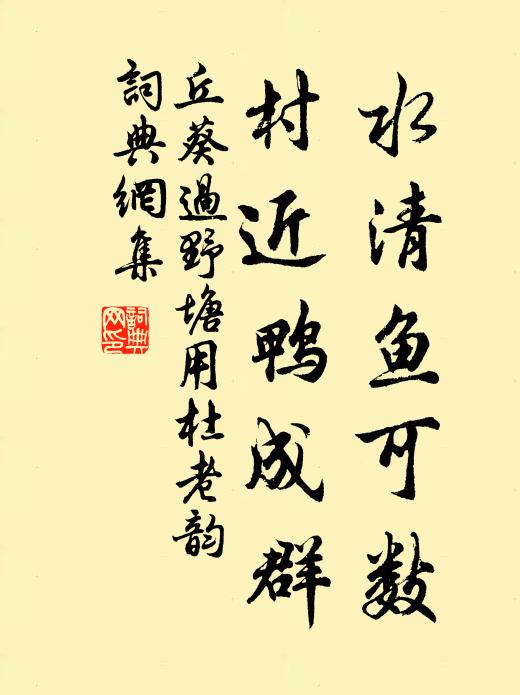 水清鱼可数
村近鸭成群
丘葵過野塘用杜老韵
詞典網集
詞典
网印